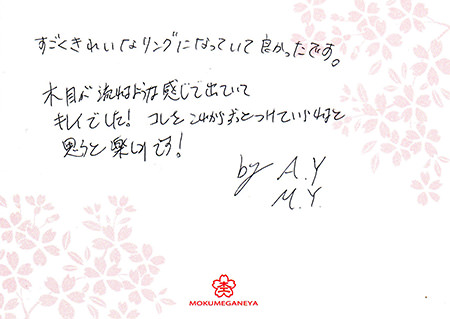 すごくきれいなリングになっていて良かったです。
木目が流れるような感じで出ていて
キレイでした! コレをこれからずっとつけていられると
思うと楽しみです!
by A.Y
M.Y.
MOKUMEGANEYA